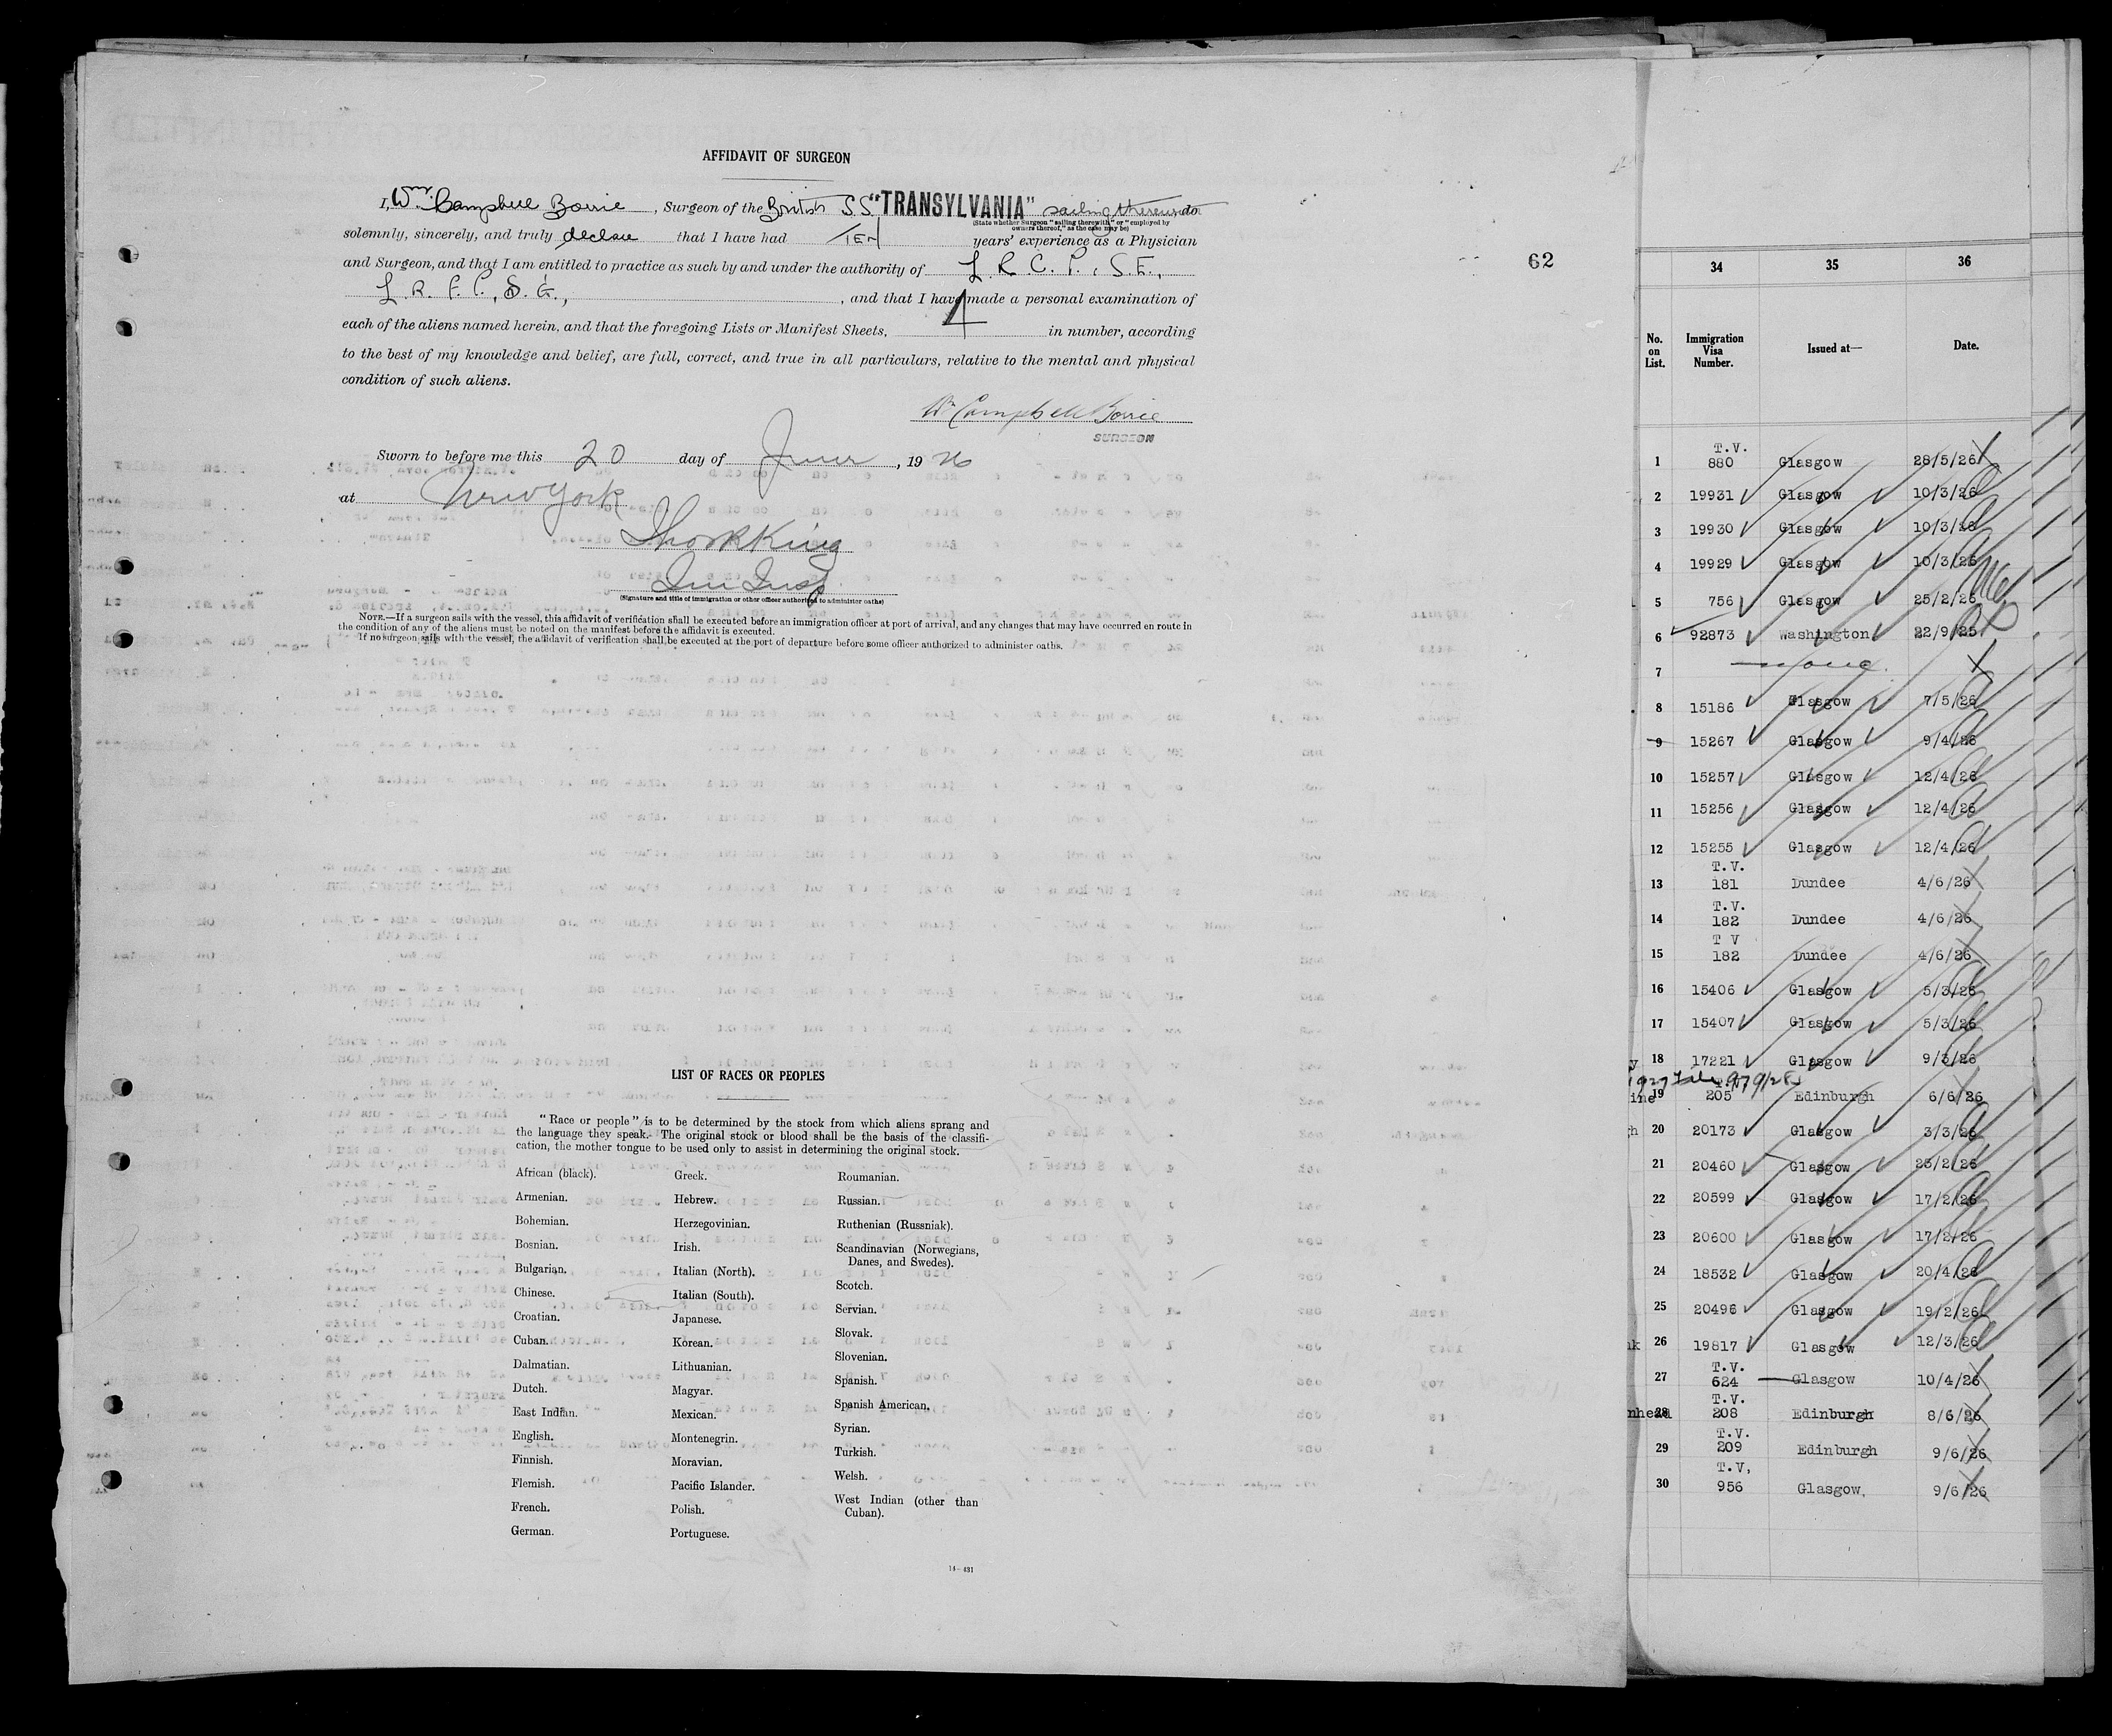 AFFIDAVIT OF SURGEON
I, Wm. Campbell Borrie, Surgeon of the British S.S. "TRANSYLVANIA" sailing therewith do
(State whether Surgeon "sailing therewith" or "employed by
owners thereof," as the case may be)
solemnly, sincerely, and truly declare that I have had TEN years' experience as a Physician
and Surgeon, and that I am entitled to practice as such by and under the authority of L. R. C. P., S. E.,
L. R. F. P., S. G., and that I have made a personal examination of
each of the aliens named herein, and that the foregoing Lists or Manifest Sheets, 4 in number, according
to the best of my knowledge and belief, are full, correct, and true in all particulars, relative to the mental and physical
condition of such aliens.
Wm Campbell Borrie
SURGEON
Sworn to before me this 20 day of June, 19 26
at New York
King
Im Insp
(Signature and title of immigration or other officer authorized to administer oaths)
NOTE.—If a surgeon sails with the vessel, this affidavit of verification shall be executed before an immigration officer at port of arrival, and any changes that may have occurred en route in
the condition of any of the aliens must be noted on the manifest before the affidavit is executed.
If no surgeon sails with the vessel, the affidavit of verification shall be executed at the port of departure before some officer authorized to administer oaths.
62
LIST OF RACES OR PEOPLES
"Race or people" is to be determined by the stock from which aliens sprang and
the language they speak. The original stock or blood shall be the basis of the classifi-
cation, the mother tongue to be used only to assist in determining the original stock.
African (black).
Armenian.
Bohemian.
Bosnian.
Bulgarian.
Chinese.
Croatian.
Cuban.
Dalmatian.
Dutch.
East Indian.
English.
Finnish.
Flemish.
French.
German.
Greek.
Hebrew.
Herzegovinian.
Irish.
Italian (North).
Italian (South).
Japanese.
Korean.
Lithuanian.
Magyar.
Mexican.
Montenegrin.
Moravian.
Pacific Islander.
Polish.
Portuguese.
Roumanian.
Russian.
Ruthenian (Russniak).
Scandinavian (Norwegians,
Danes, and Swedes).
Scotch.
Servian.
Slovak.
Slovenian.
Spanish.
Spanish American.
Syrian.
Turkish.
Welsh.
West Indian (other than
Cuban).
14—431
34 35 36
No. on List. Immigration Visa Number. Issued at— Date.
T.V.
1 880 Glasgow 28/5/26
2 19931 Glasgow 10/3/26
3 19930 Glasgow 10/3/26
4 19929 Glasgow 10/3/26
5 756 Glasgow 25/2/26
6 92873 Washington 22/9/25
7 none.
8 15186 Glasgow 7/5/26
9 15267 Glasgow 9/4/26
10 15257 Glasgow 12/4/26
11 15256 Glasgow 12/4/26
12 15255 Glasgow 12/4/26
T.V.
13 181 Dundee 4/6/26
T.V.
14 182 Dundee 4/6/26
T V
15 182 Dundee 4/6/26
16 15406 Glasgow 5/3/26
17 15407 Glasgow 5/3/26
18 17221 Glasgow 9/3/26
19 205 Edinburgh 6/6/26
20 20173 Glasgow 3/3/26
21 20460 Glasgow 23/2/26
22 20599 Glasgow 17/2/26
23 20600 Glasgow 17/2/26
24 18532 Glasgow 20/4/26
25 20496 Glasgow 19/2/26
26 19817 Glasgow 12/3/26
T.V.
27 624 Glasgow 10/4/26
T.V.
28 208 Edinburgh 8/6/26
T.V.
29 209 Edinburgh 9/6/26
T.V.
30 956 Glasgow. 9/6/26